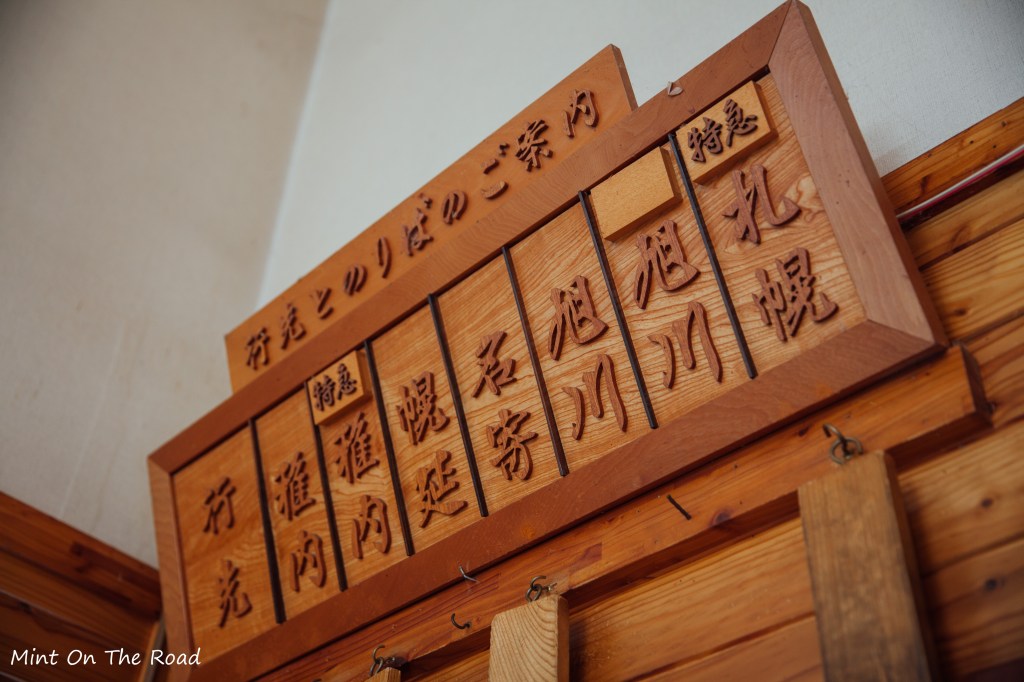 行先とのりばのご案内
行先
稚内
特急
稚内
幌延
名寄
旭川
旭川
特急
札幌
Mint On The Road